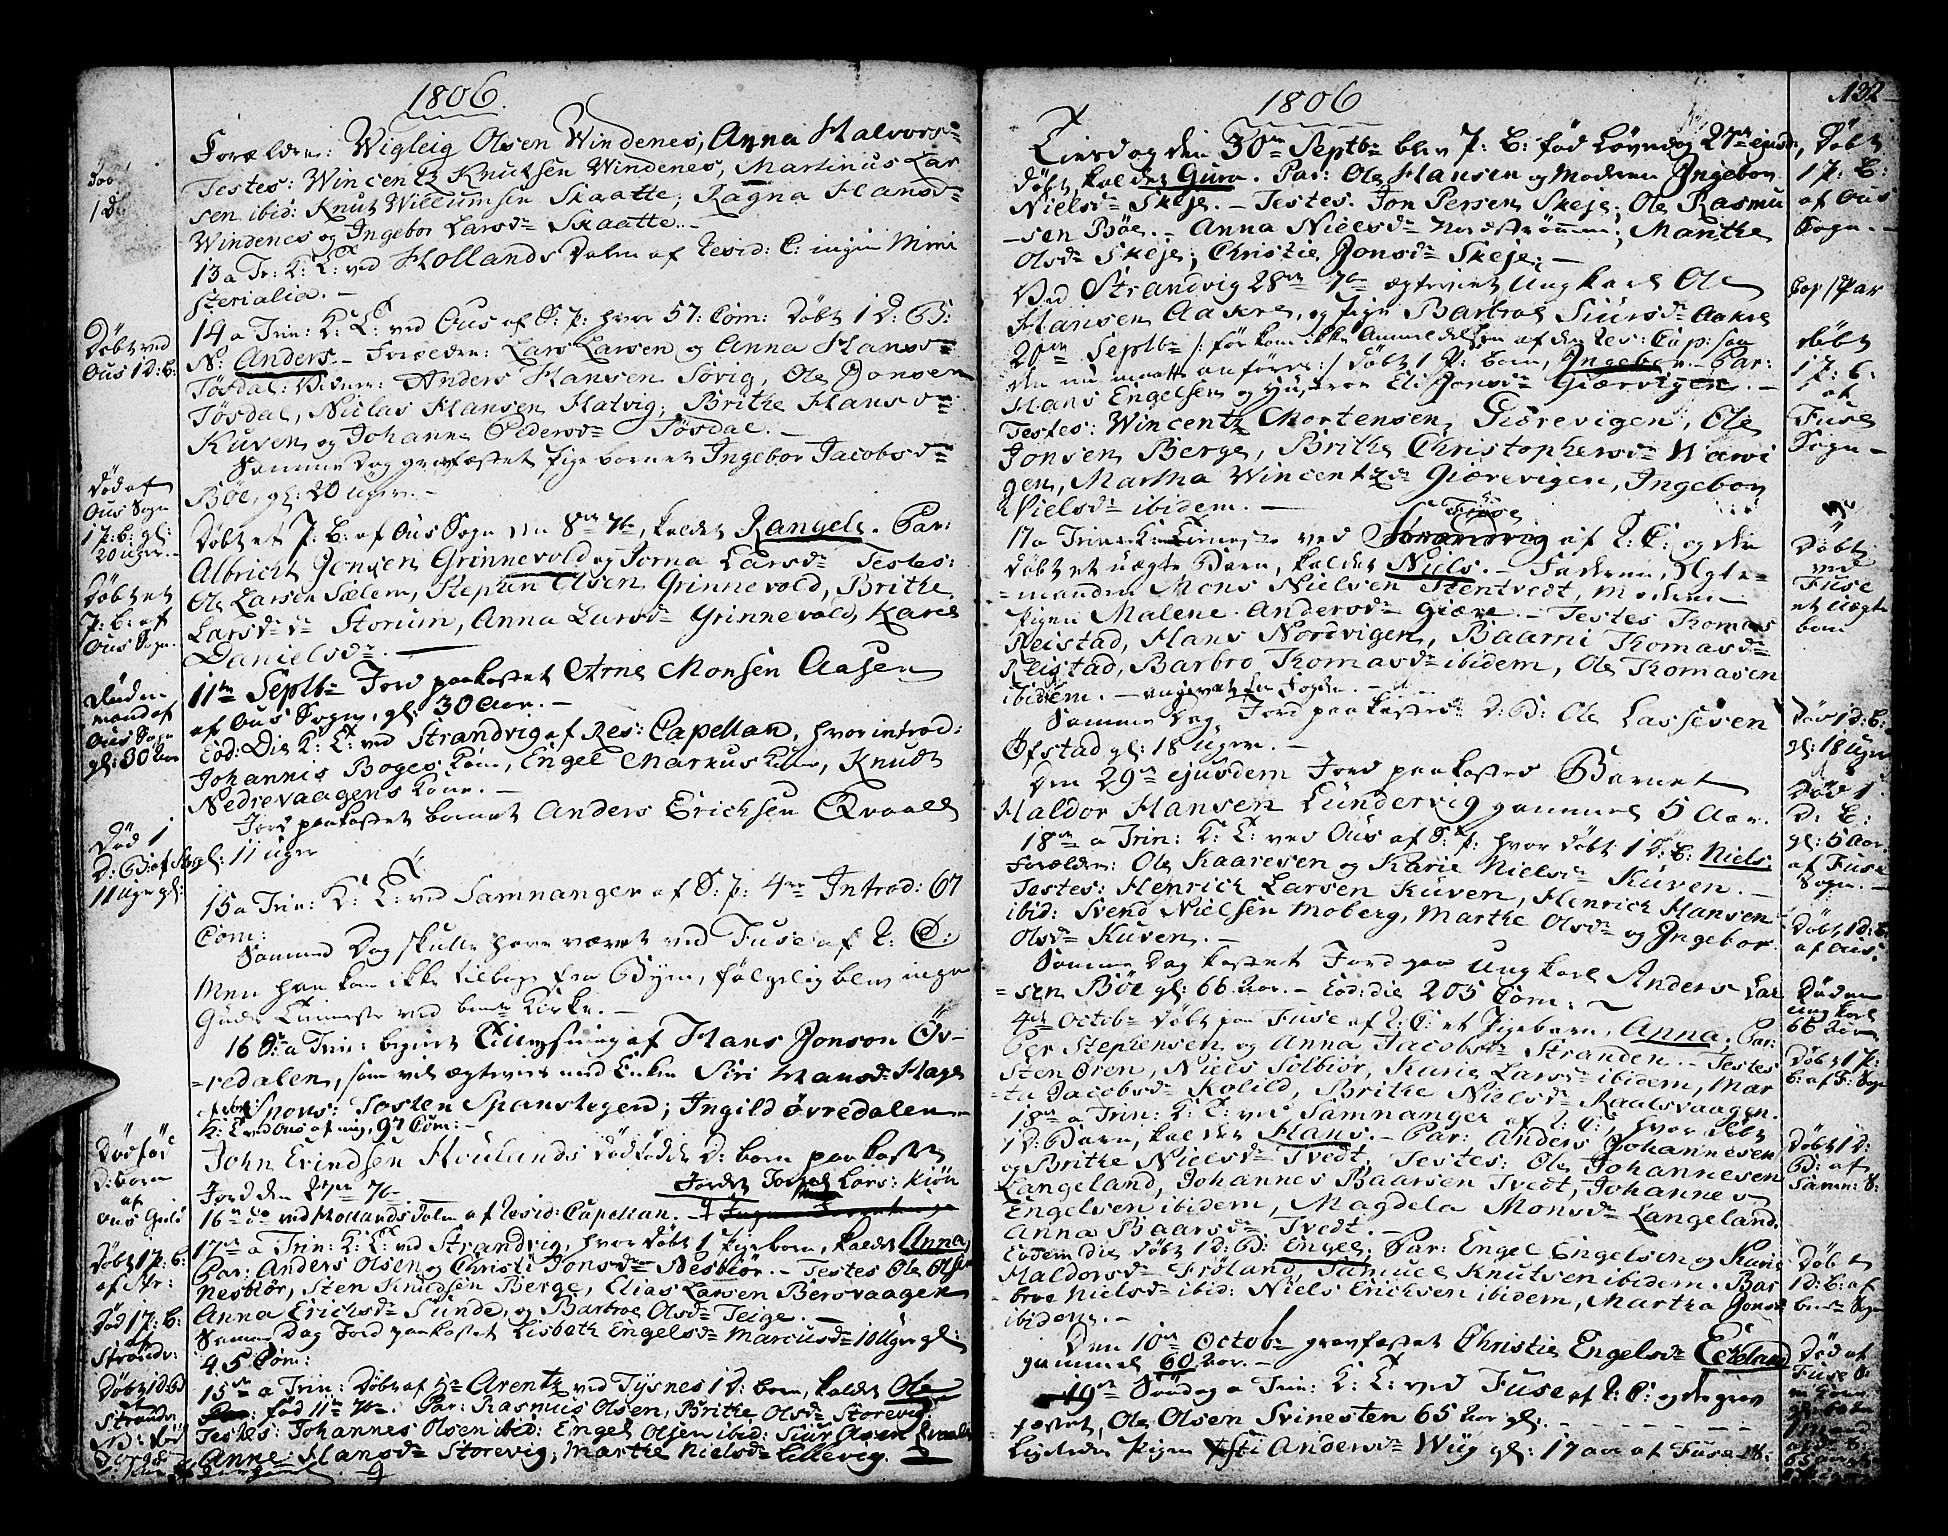 1806.
Forældre: Wigleig Olsen Windenes, Anna Halvors-
Testes: Wincentz Knudsen Windenes, Martinus Lar
sen ibid: Knut Willumsen Skaatte; Ragna Hansd-
Windenes og Ingebor Larsdr Skaatte. -
13 a Tr: K: T: ved Hollands Dalen af Resid: C: ingen Mini
sterialia. -
14 a Trin: K: T: ved Ous af S: p: hvor 57: Com: Døbt 1 D: B:
N: Anders. - Forældre: Lars Larsen og Anna Hansd-
Tøsdal: Viderer: Anders Hansen Sørig, Ole Jonsen
Tøsdal, Niclas Hansen Hatvig, Brithe Hansd-
Kuven og Johanne Pedersdr Tøsdal. -
Samme Dag gravfæstet Pigebarnet Ingebor Jacobsd-
Bøe, gl: 20 uger. -
Døbt et P: B: af Ous Sogn den 8de 7br, kaldet Rangele. Par:
Albricht Jensen Grinnevold og Jorna Larsdr Testes:
Ole Larsen Sælem, Stephen Olsen Grinnevold, Brithe
Larsdr Storum, Anna Larsdr Grinnevold, Karie
Danielsdr. -
11te Septbr Jord paakastet Arne Monsen Aasen
af Ous Sogn, gl: 30 Aar. -
Eod: Die K: T: ved Strandvig af Res: Capellan, hvor introd:
Johannis Boges Kone, Engel Markus Kone, Knudt
Nedrevaagens Kone. -
Jord paakastet barnet Anders Erichsen Qvaale
gl: 11 uger
15 a Trin: K: T: ved Samnanger af S: p: 4re Introd: 67
Com:
Samme Dag skulle have været ved Fuse af R: C:
Men han kom ikke tilbage fra Byen, følgelig blev ingen
Guds Tieneste ved bemte Kirke. -
16 S: a Trin: begiert Tillysning af Hans Jonson Øv-
redalen, som vil ægtevies med Enken Siri Hansd: Hage
Spons: Tosten Spanstegen; Ingild Øvredalen
K: T: ved Ous af mig, 97 Com: -
John Evindsen Hovlands dødfødde D: barn paakastet
Jord den 7br
16de do ved Hollandsdalen af Resid: Capellan.
17de a Trin: K: T: ved Strandvig, hvor døbt 1 Pigebarn, kaldet Anna
Par: Anders Olsen og Christi Jonsdr Nesbiør. - Testes Ole Olsen
Nesbiør, Sten Knudsen Berge, Elias Larsen Bersvaagen
Anna Erichsdr Sunde, og Barbroe Olsdr Teige. -
Samme Dag Jord paakastet Lisbeth Engelsdr Marcusdr 10 Uger gl:
45 Com:
15de a Trin: Døbt af Hr Arentz ved Tysnes 1 D: barn, kaldet Ole
fød 11te 7br. Par: Rasmus Olsen, Brithe Olsdr Storevig.
Testes: Johannes Olsen ibid: Engel Olsen ibid: Siur Olsen
Anne Hansdr Storevig, Marthe Nielsdr Lillevig.
Døbt ved
Ous 1 D: B:
Død af
Ous Sogn
1 P: B: gl:
20 uger. -
Døbt et
P: B: af
Ous Sogn.
mand af
Ous Sogn
gl: 30 Aar
Død 1
D: B: af
11 Uger gl:
Dødfød
D: barn
af
Ous Sogn
Døbt 1 P: B:
af Str:
Død 1 P: B:
af
Strand:
Døbt 1 D: B
af
Strand:
1806
132
Tirsdag den 30te Septbr blev P: B: fød Løverdag 27de ejusd:
døbt, kaldet Guro. Par: Ole Hansen og Moderen Ingebor
Nielsdr Skeje. - Testes. Jon Persen Skeje; Ole Rasmu
-sen Bøe. - Anna Nielsdr Nordstrømme; Marthe
Olsdr Skeje; Christie Jonsdr Skeje; -
Ved Strandvig 28de 7br ægteviet Ungkarl Ole
Hansen Aakre, og Pige Barbroe Siursdr Aakre
20de Septbr /: før kom ikke Anmeldelsen af den Res: Cap: saa
den nu maatte anføres :/ døbt 1 P: Barn, Ingebor. - Par:
Hans Engelsen og Hustroe El: Jonsdr Giærvigen. -
Testes: Wincentz Mortensen, Giærevigen, Ole
Jonsen Berge, Brithe Christophersdr Warvi
gen, Martha Wincentzdr Giærevigen, Ingebor
Nielsdr ibidem. -
Fuse
17 a Trin: K: Tieneste ved Strandvig af R: C: og der
døbt et uægte Barn, kaldet Niels. - Faderen, Ægte-
-manden Mons Nielsen Stentvedt, Moderen
Pigen Malene Andersdr Giære. - Testes Thomas
Reistad, Hans Nordvigen, Baarni Thomasdr
Reistad, Barbro Thomasdr ibidem, Ole Thomasen
ibidem. - angivet for Fogden. -
Samme Dag Jord paakastet D: B: Ole Lassesen
Øfstad gl: 18 Uger. -
Den 29de ejusdem Jord paakastet Barnet
Haldor Hansen Lundervig gammel 5 Aar.
18de a Trin: K: T: ved Ous af S: p: hvor døbt 1 D: B: Niels.
Forældre: Ole Kaaresen og Karie Nielsdr Kuven. -
Testes: Henrich Larsen Kuven, Henrich Hansen
ibid: Svend Nielsen Moberg, Marthe Olsdr og Ingebor
Olsdr Kuven. -
Samme Dag kastet Jord paa Ungkarl Anders Lar
-sen Bøe gl: 66 Aar. - Eod: die 205 Com: -
4de Octobr døbt paa Fuse af R: C: et Pigebarn, Anna. Par:
Per Stephensen og Anna Jacobsdr Stranden. - Testes
Sten Øren, Niels Solbiør, Karie Larsdr ibidem, Mar
ta Jacobsdr Kolild, Brithe Nielsdr Raalsvaagen.
18de a Trin: K: T: ved Samnanger af R: C:, hvor døbt
1 D: Barn, kaldet Hans. - Par: Anders Johannesen
og Brithe Nielsdr Tvedt, Testes: Ole Johannesen
Langeland, Johannes Baarsen Tvedt, Johannes
Engelsen ibidem, Magdela Monsdr Langeland.
Anna Baarsdr Tvedt. -
Eodem die døbt 1 D: B: Engel; Par: Engel Engelsen og Karie
Haldorsdr Frøland, Samuel Knutsen ibidem. Bar
broe Nielsdr ibid: Niels Erichsen ibidem, Martha Jonsdr
ibidem. -
Den 10de Octobr gravfæstet Christie Engelsdr Eckeland
gammel 60 Aar. -
19de Søndag a Trin: K: T: ved Fuse af R: C: og der grav
fæstet, Ole Olsen Svinesten 65 Aar gl: -
Ligeledes Pigen Andersdr Wiig gl: 17 aar af Fuse S:
Døbt
1 P: B:
af Ous
Sogn. -
Cop 1 Par
døbt
1 P: B:
af
Fuse
Sogn -
Døbt
ved
Fuse
et Uægte
barn
Død 1 D: B:
gl: 18 Uger
Død 1
D: B:
gl: 5 Aar
af Fuse
Sogn. -
Døbt 1 D: B:
af Ous.
Død en
Ungkarl
66 Aar
Døbt 1 P:
B: af F: Sogn
Døbt 1 D:
B: af
Samn: S:
Døbt
1 D: B: af
bemte Sogn
Død af
Fuse S: